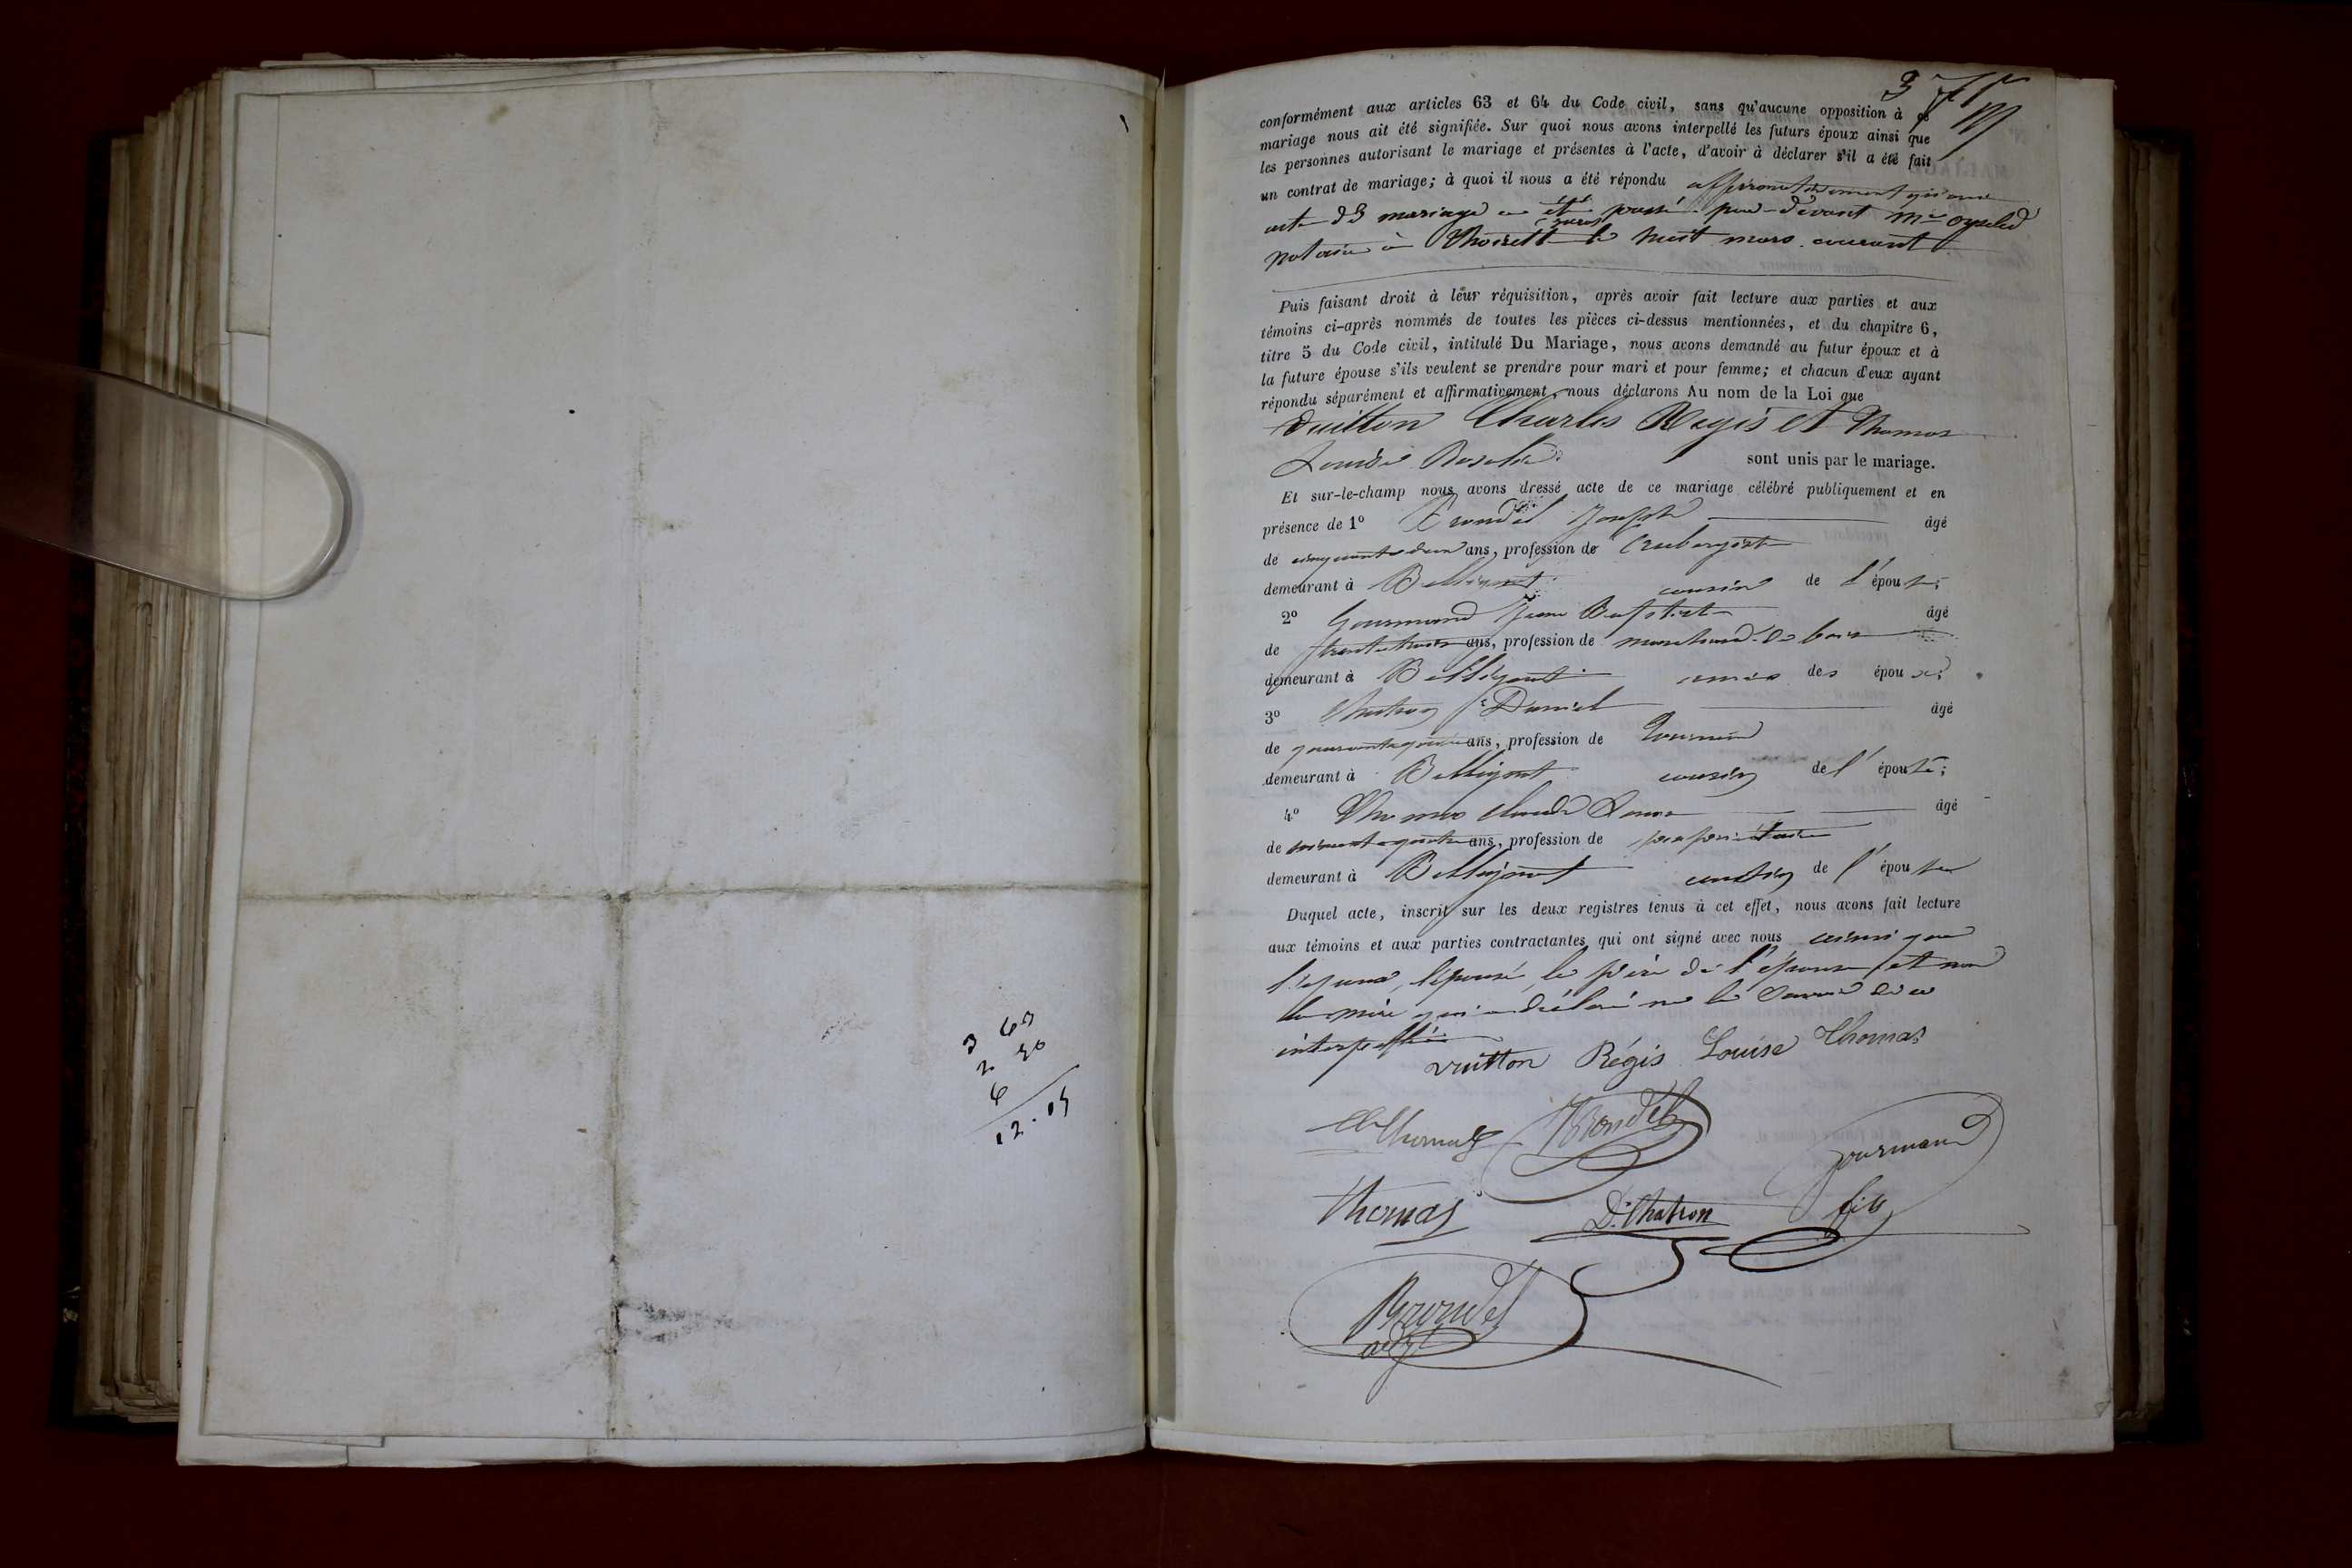 3 65
2 50
6
12.15
conformément aux articles 63 et 64 du Code civil, sans qu'aucune opposition à ce
mariage nous ait été signifiée. Sur quoi nous avons interpellé les futurs époux ainsi que
les personnes autorisant le mariage et présentes à l'acte, d'avoir à déclarer s'il a été fait
un contrat de mariage; à quoi il nous a été répondu affirmativement qu'un
acte de mariage a été passé par-devant Me
notaire à Thoirette (Jura) le huit mars courant
Puis faisant droit à leur réquisition, après avoir fait lecture aux parties et aux
témoins ci-après nommés de toutes les pièces ci-dessus mentionnées, et du chapitre 6,
titre 5 du Code civil, intitulé Du Mariage, nous avons demandé au futur époux et à
la future épouse s'ils veulent se prendre pour mari et pour femme; et chacun d'eux ayant
répondu séparément et affirmativement, nous déclarons Au nom de la Loi que
Vuitton Charles Régis et Thomas
Louise Rosalie sont unis par le mariage.
Et sur-le-champ nous avons dressé acte de ce mariage célébré publiquement et en
présence de 1º Brondel Joseph âgé
de cinquante deux ans, profession de aubergiste
demeurant à Bellignat cousin de l'épouse;
2º Gourmand Jean Baptiste âgé
de trente trois ans, profession de marchand de bois
demeurant à Bellignat ami des époux;
3º Chatron Daniel âgé
de quarante quatre ans, profession de Tourneur
demeurant à Bellignat cousin de l'épouse;
4º Thomas Claude âgé
de ans, profession de propriétaire
demeurant à Bellignat cousin de l'épouse
Duquel acte, inscrit sur les deux registres tenus à cet effet, nous avons fait lecture
aux témoins et aux parties contractantes qui ont signé avec nous ainsi que
l'époux, l'épouse, le père de l'épouse et non
la mère qui a déclaré ne le savoir de ce
interpellée
vuitton Régis Louise Thomas
Thomas Brondel
Gourmand
Thomas D. Chatron fils
Brondel
adjt